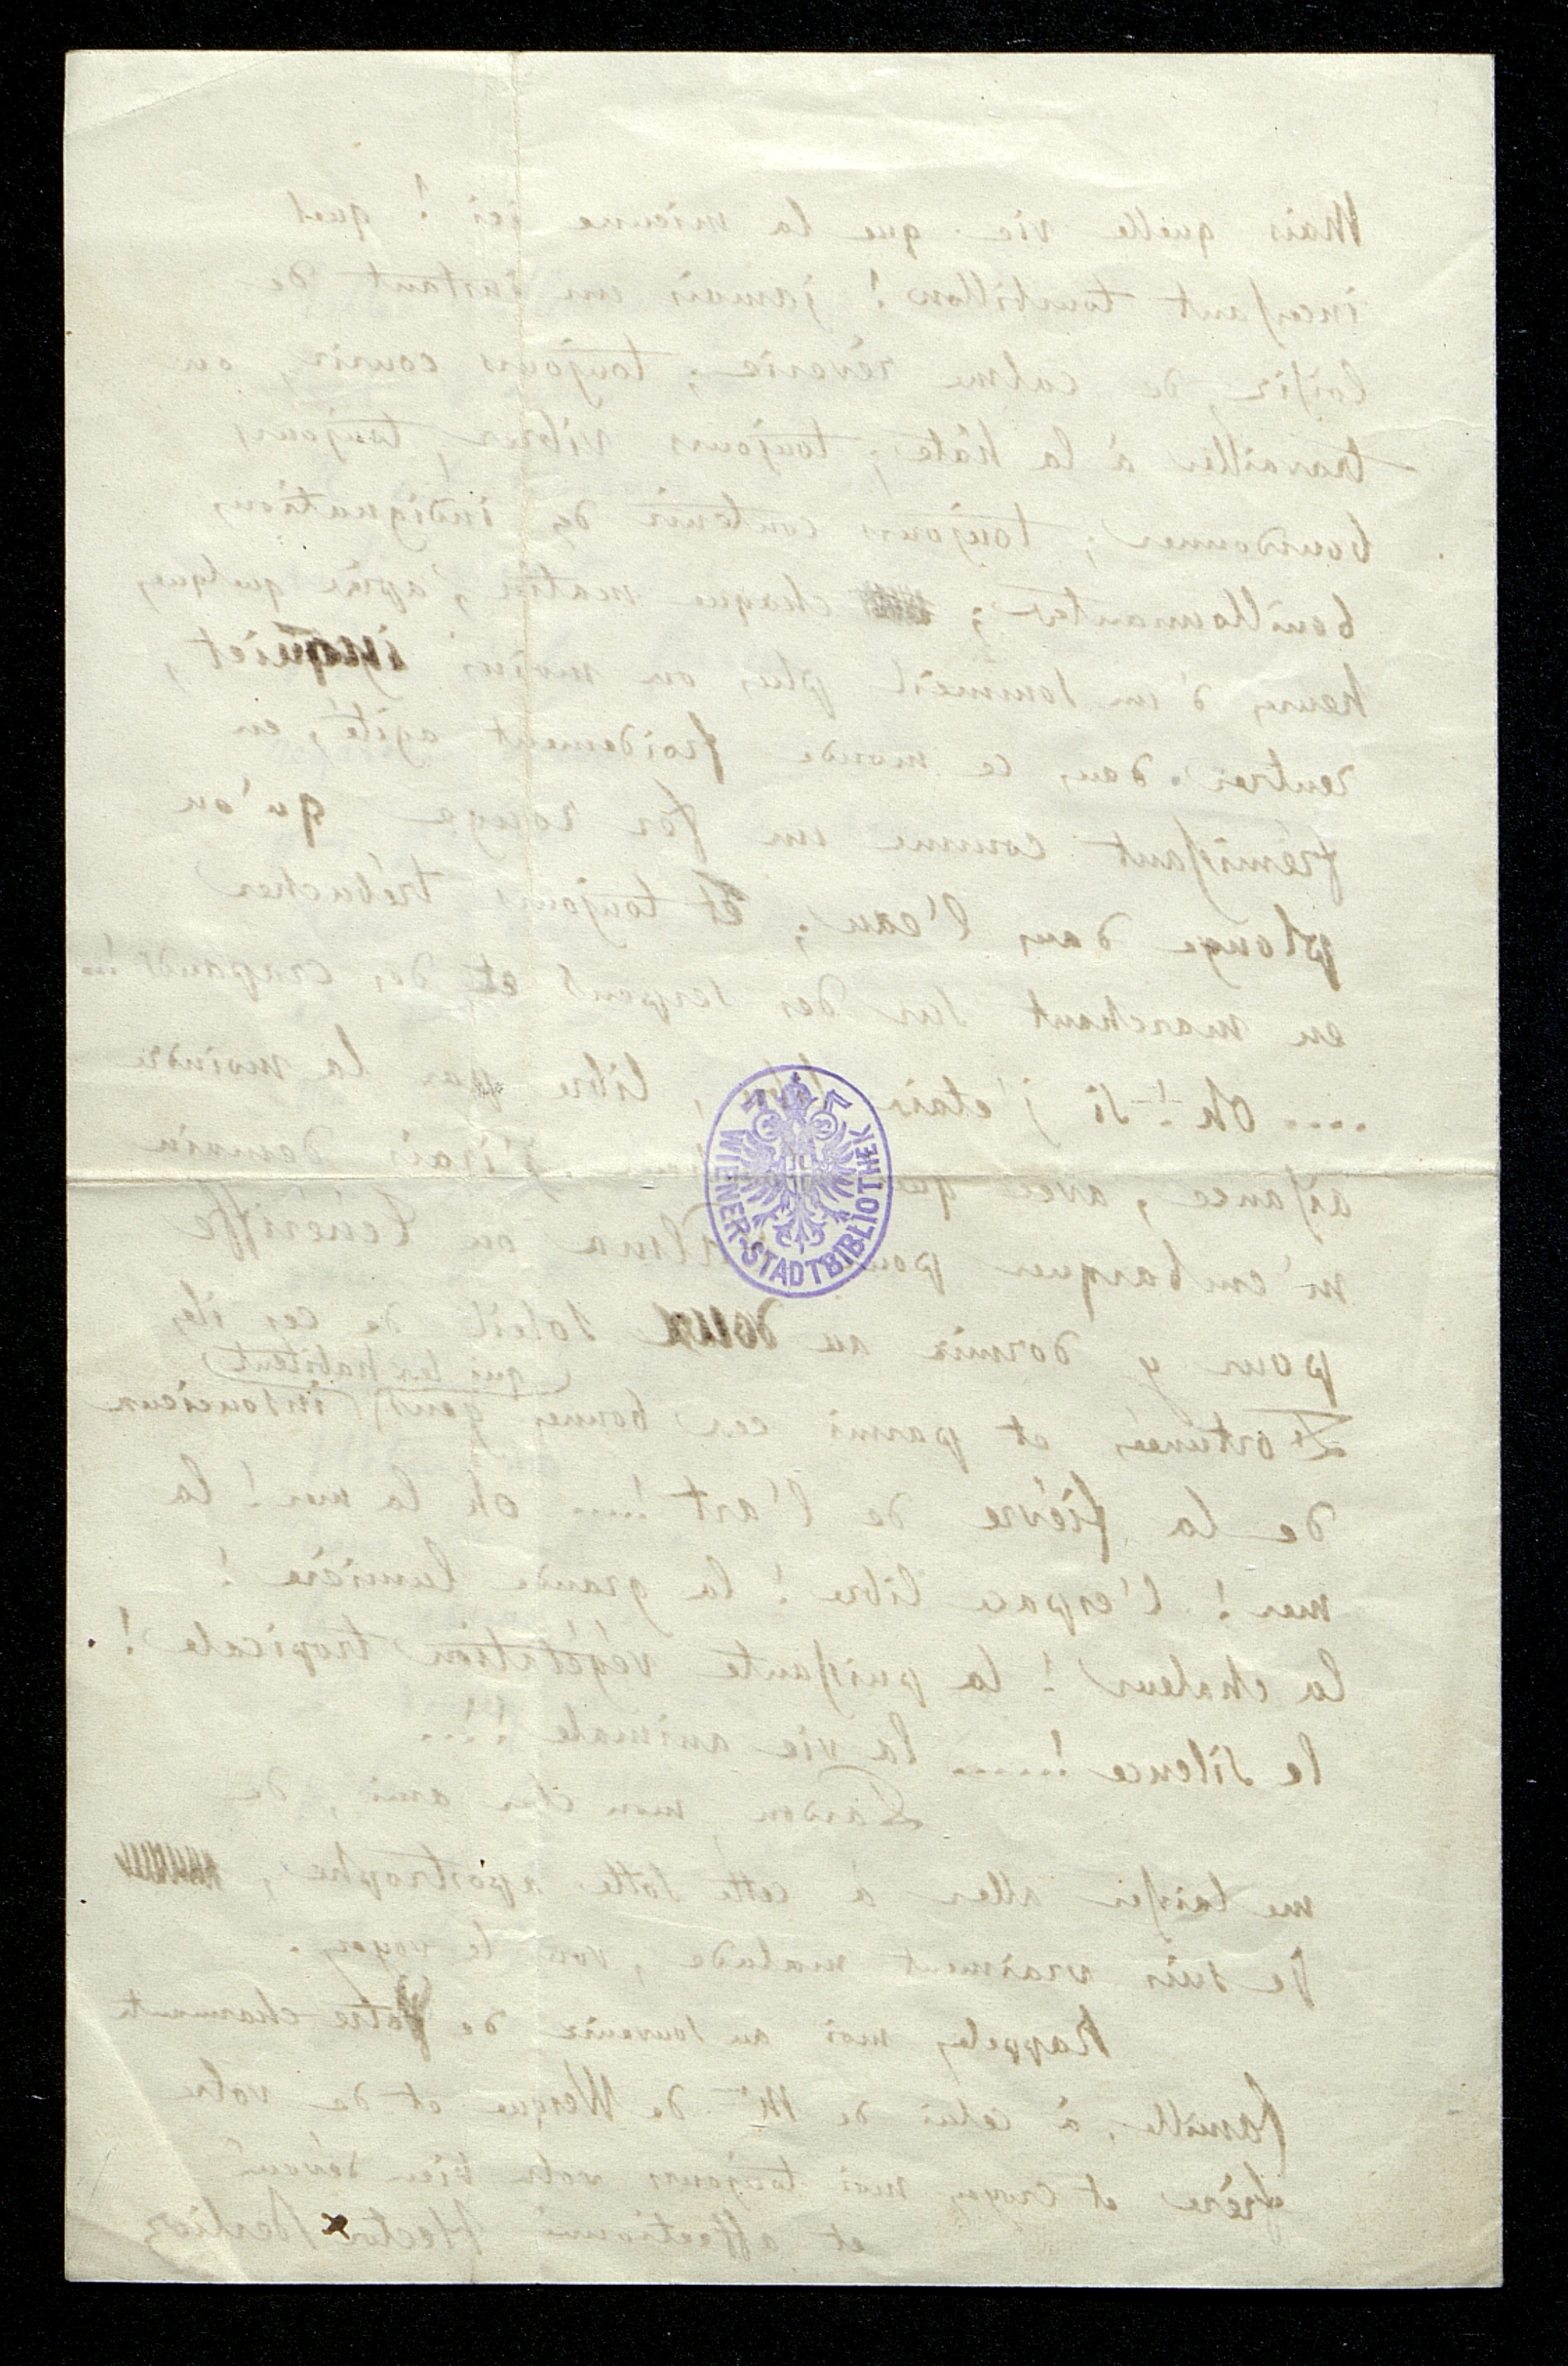 Mais quelle vie que la mienne ici ! quel
incessant tourbillon ! jamais un instant de
loisir, de calme rêverie ; toujours courir, ou
travailler à la hâte ; toujours vibrer, toujours
bourdonner ; toujours contenir des indignations
bouillonnantes ; chaque matin, après quelques
heures d'un sommeil plus ou moins inquiet,
rentrer dans ce monde froidement agité, en
frémissant comme un fer rouge qu'on
plonge dans l'eau ; et toujours trébucher
en marchant sur des serpents et des crapauds !...
.... Oh ! si j'étais libre, libre par la moindre
aisance, avec j'irais demain
m'embarquer pour Palma ou Ténériffe
pour y dormir au doux soleil de ces îles
qui les habitent
Fortunées et parmi ces bonnes gens insoucieux
de la fièvre de l'art !.... oh la mer ! la
mer ! l'espace libre ! la grande lumière !
la chaleur ! la puissante végétation tropicale !
le silence !..... la vie animale !...
Pardon, mon cher ami, de
me laisser aller à cette sotte apostrophe,
je suis vraiment malade, vous le voyez.
Rappelez moi au souvenir de votre charmante
famille, à celui de Mr de Wesque et de votre
frère et croyez moi toujours votre bien dévoué
et affectionné Hector Berlioz
WIENER-STADTBIBLIOTHEK